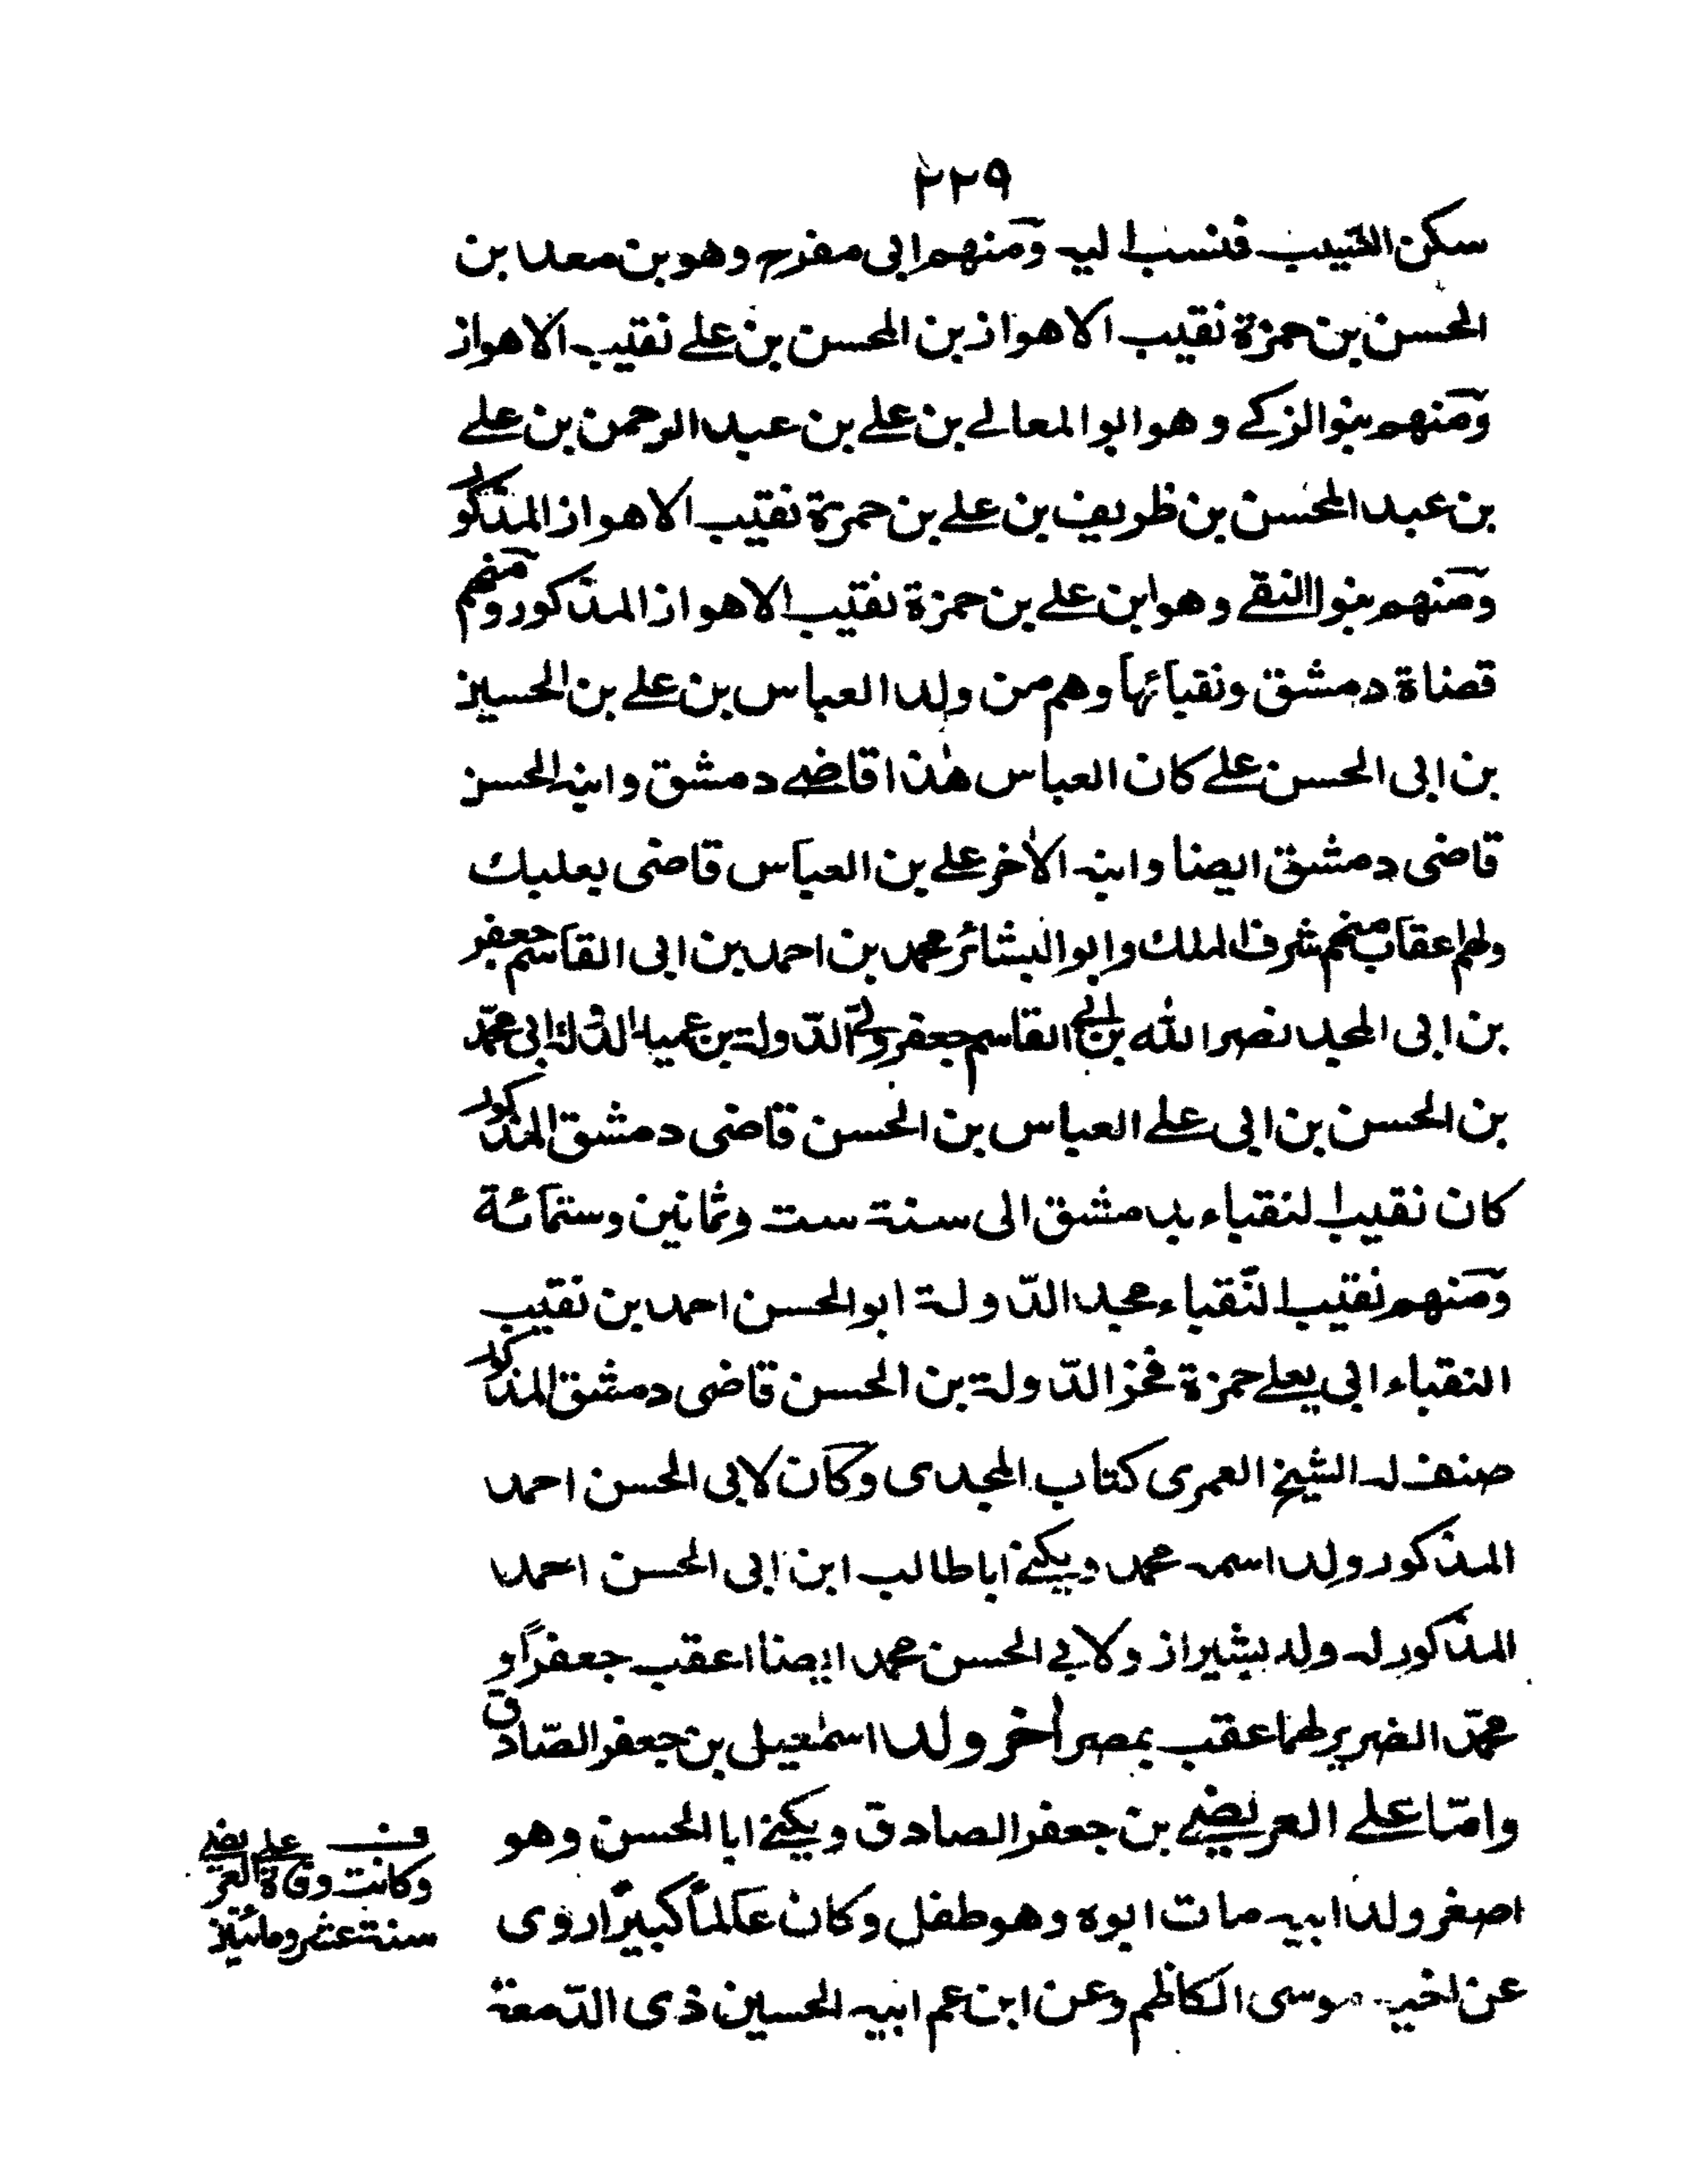 ٢٢٩
سكن القتيب فنسب اليه ومنهم ابى مفرح وهو بن معد بن
الحسن بن حمزة نقيب الاهواز بن المحسن بن على نقيب الاهواز
ومنهم بنو الزكے وهو ابو المعالے بن علے بن عبد الرحمن بن علے
بن عبد المحسن بن ظريف بن علے بن حمزة نقيب الاهواز المذكور
ومنهم بنو النقے وهو ابن علے بن حمزة نقيب الاهواز المذكور ومنهم
قضاة دمشق ونقبائها وهم من ولد العباس بن علے بن الحسين
بن ابى الحسن علے كان العباس هذا قاضے دمشق وابنه الحسن
قاضى دمشق ايضا وابنه الاخر علے بن العباس قاضى بعلبك
ولهم اعقاب منهم شرف الملك وابو البشائر محمد بن احمد بن ابى القاسم جعفر
بن ابى المجد نصر الله بن ابى القاسم جعفر ولى الدّولة بن عميد الدولة ابى محمّد
بن الحسن بن ابى علے العباس بن الحسن قاضى دمشق المذكور
كان نقيب النقباء بدمشق الى سنة ست وثمانين وستمائة
ومنهم نقيب النّقباء مجد الدّولة ابو الحسن احمد بن نقيب
النقباء ابى يعلے حمزة فخر الدّولة بن الحسن قاضى دمشق المذكور
صنف له الشيخ العمرى كتاب المجدى وكان لابى الحسن احمد
المذكور ولد اسمه محمد ويكنے ابا طالب ابن ابى الحسن احمد
المذكور له ولد بشيراز ولابي الحسن محمد ايضا اعقب جعفراً و
محمّد الضرير لهما عقب بمصر اٰخر ولد اسمٰعيل بن جعفر الصّادق
وامّا علے العريضے بن جعفر الصادق ويكنے ابا الحسن وهو
اصغر ولد ابيه مات ابوه وهو طفل وكان عالماً كبيراً روى
عن اخيه موسى الكاظم وعن ابن عم ابيه الحسين ذى الدّمعة
وكانت وفاة على العريضے
سنة عشر ومائتين